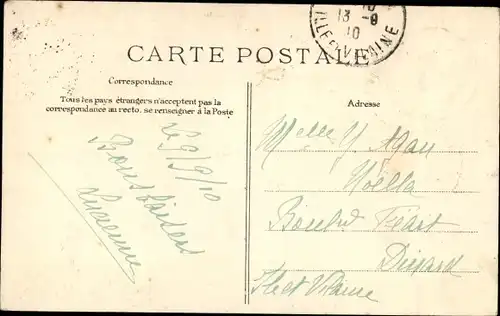 10
13 -9
10
ILLE-ET-VILAINE
CARTE POSTALE
Correspondance
Tous les pays étrangers n'acceptent pas la
correspondance au recto. se renseigner à la Poste
Adresse
le 9/9/10
Bons baisers
Lucienne
Melle Y.
Noëlla
Boulvd Féart
Dinard
Ille et Vilaine